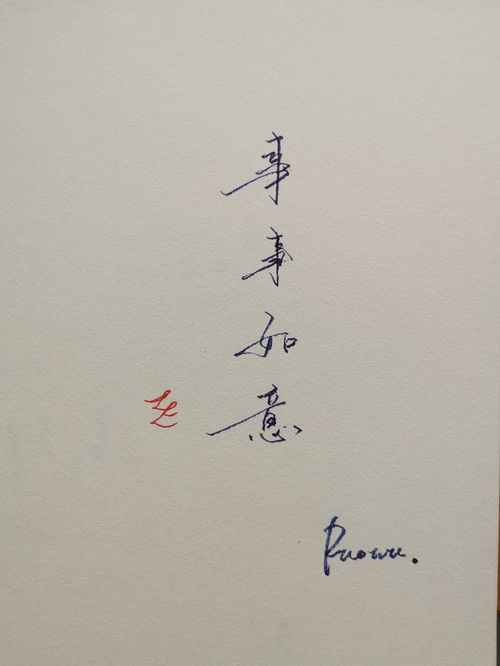 事事如意
Ruowu.